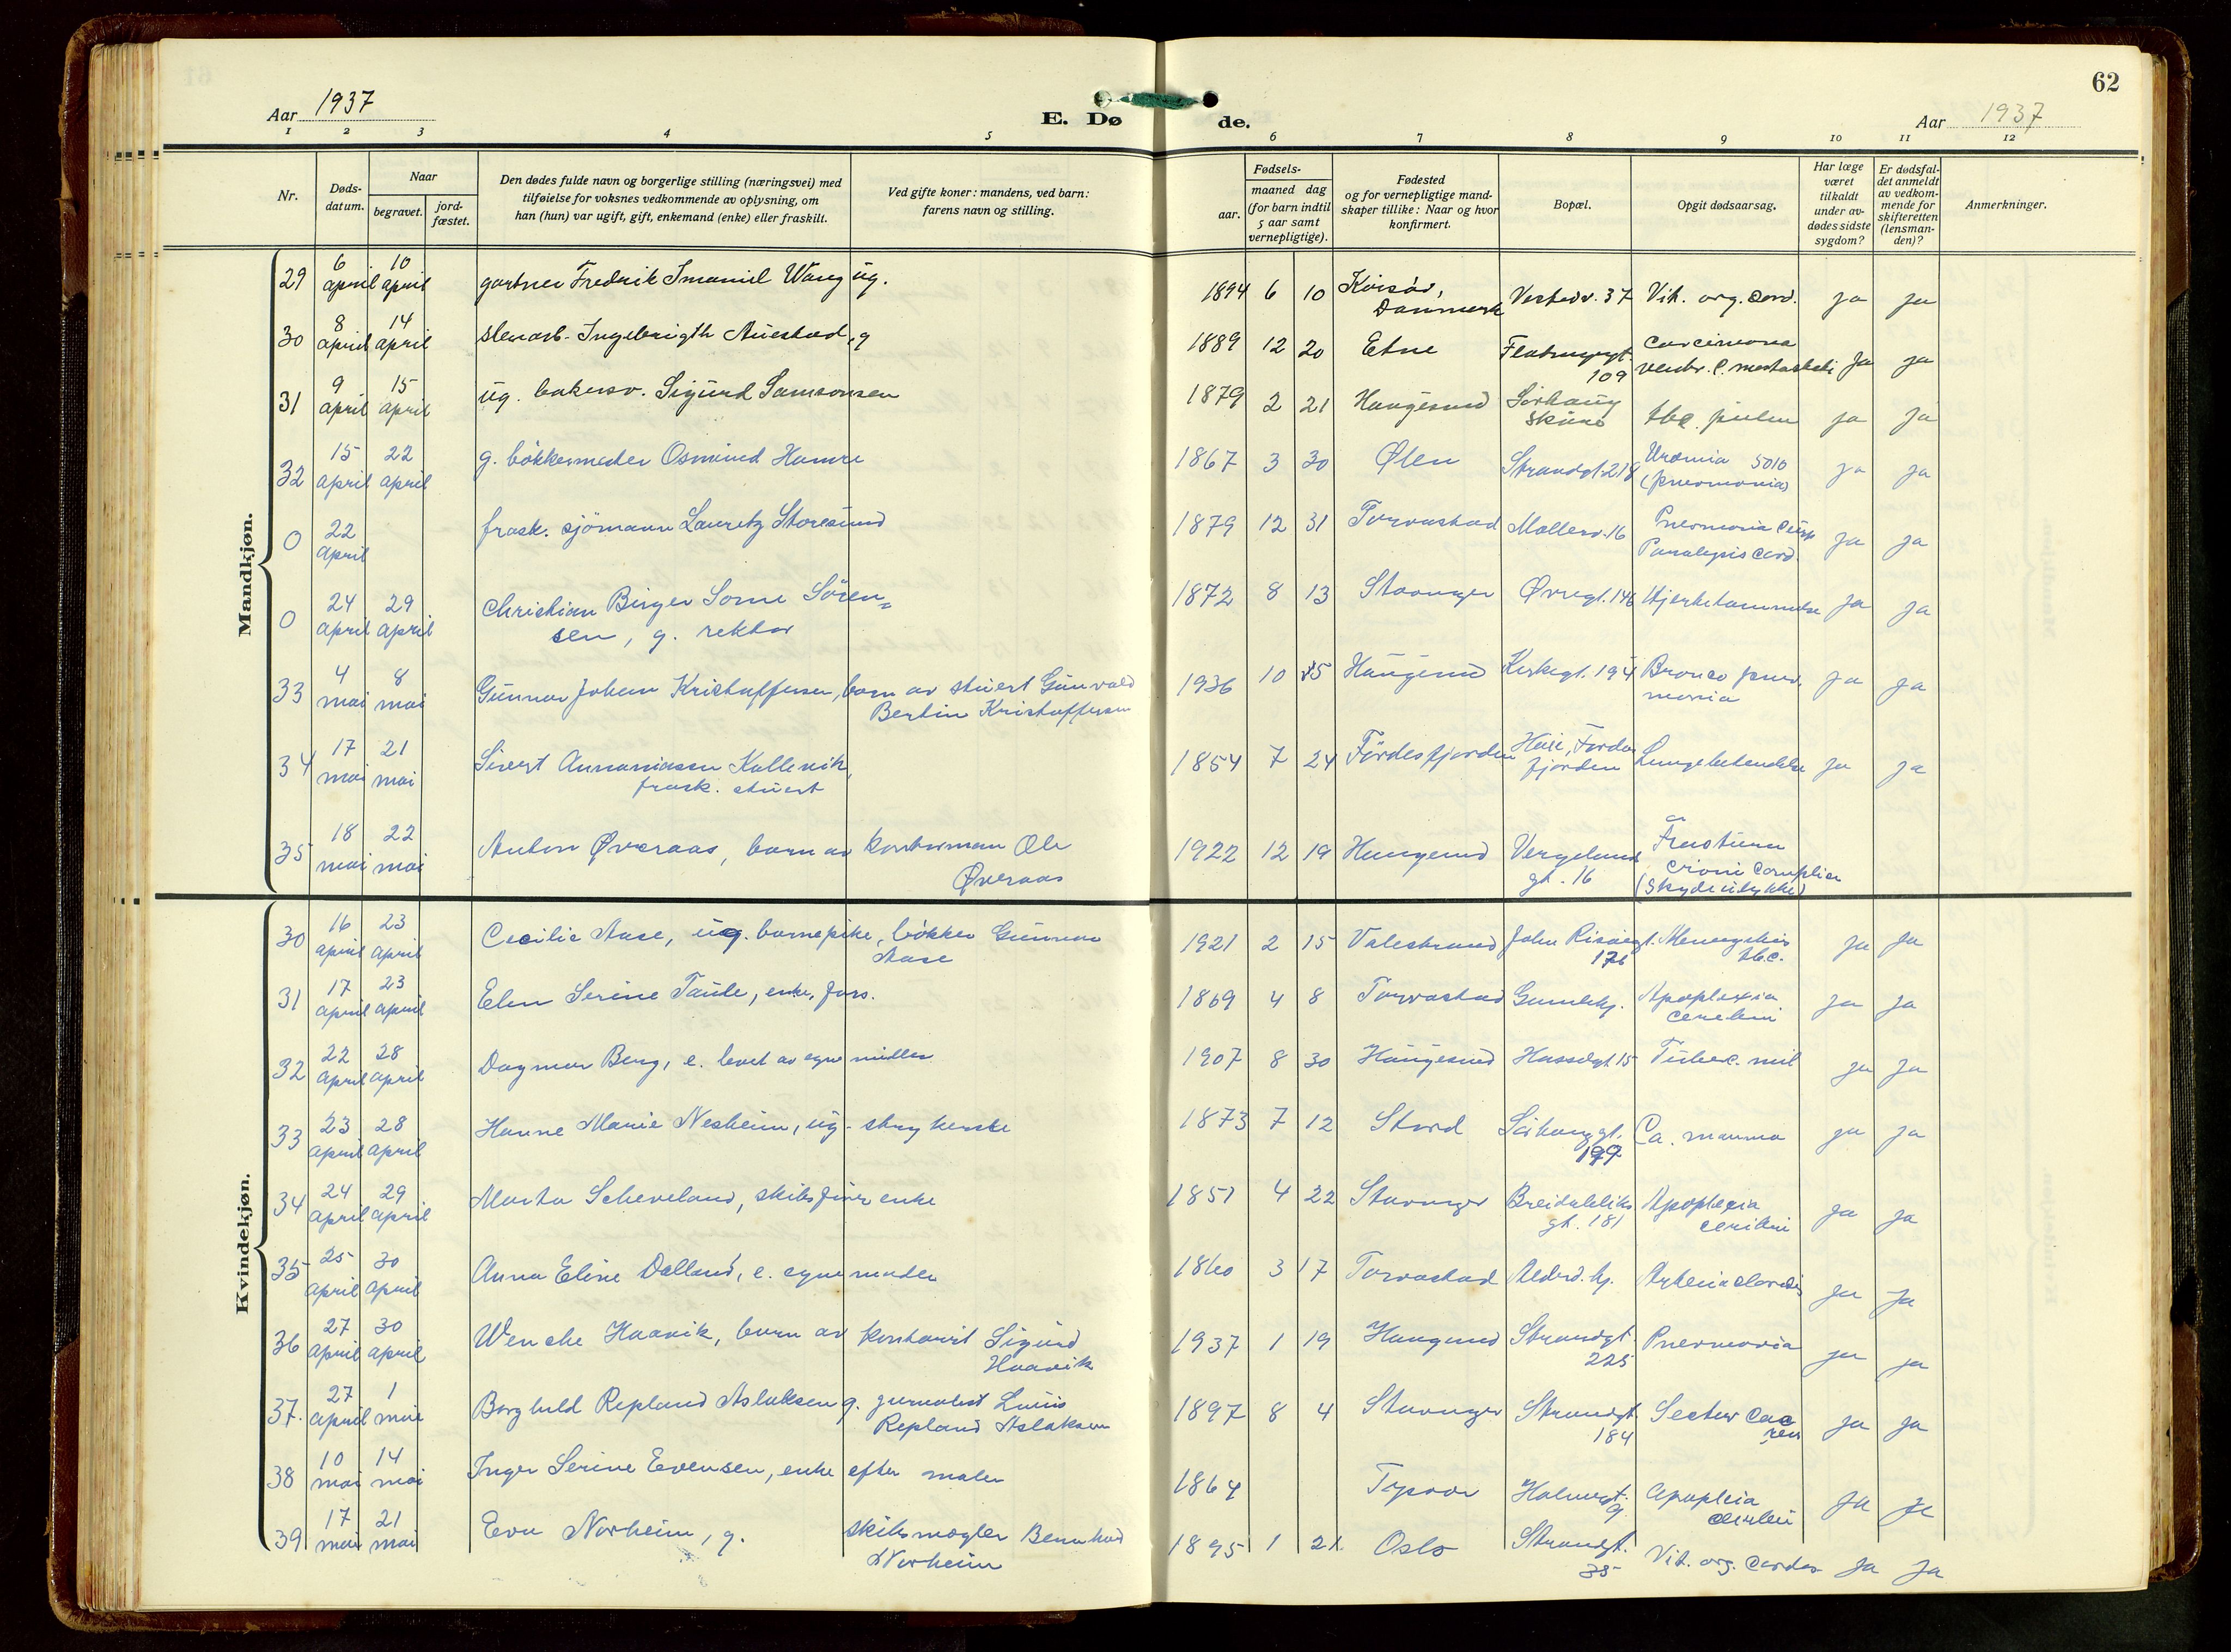 62
Aar 1937
E. Dø
de.
Aar 1937
1 2 3 4 5 6 7 8 9 10 11 12
Nr.
Døds-
datum.
Naar
begravet.
jord-
fæstet.
Den dødes fulde navn og borgerlige stilling (næringsvei) med
tilføielse for voksnes vedkommende av oplysning, om
han (hun) var ugift, gift, enkemand (enke) eller fraskilt.
Ved gifte koner: mandens, ved barn:
farens navn og stilling.
Fødsels-
aar.
maaned dag
(for barn indtil
5 aar samt
vernepligtige).
Fødested
og for vernepligtige mand-
skaper tillike: Naar og hvor
konfirmert.
Bopæl.
Opgit dødsaarsag.
Har læge
været
tilkaldt
under av-
dødes sidste
sygdom?
Er dødsfal-
det anmeldt
av vedkom-
mende for
skifteretten
(lensman-
den)?
Anmerkninger.
Mandkjøn.
29 6 april 10 april gartner Fredrik Imanuel Wang ug. 1894 6 10 Korsør, Danmark Vestedv. 37 Vit. org. cord. ja ja
30 8 april 14 april stenarb. Ingebrigth Auestad, g 1889 12 20 Etne 109 Carcinoma ja ja
31 9 april 15 april ug. bakersv. Sigurd Samsonsen 1879 2 21 Haugesund Sörhaug skole tbc. pulm ja ja
32 15 april 22 april g. bökkermester Osmund Hamre 1867 3 30 Ølen Strandgt. 218 Uræmia (pneumonia) ja ja
0 22 april frask. sjömann Lauritz Storesund 1879 12 31 Torvastad Møllerv. 16 Pneumonia Paralysis cord. ja ja
0 24 april 29 april Christian Birger Lorne Sören=
sen, g. rektor 1872 8 13 Stavanger Øvregt. 146 Hjertelammelse ja ja
33 4 mai 8 mai Gunnar Johan Kristoffersen, barn av stuert Gunvald
Bertin Kristoffersen 1936 10 15 Haugesund Kirkegt. 194 Bronco pneu-
monia ja ja
34 17 mai 21 mai Sivert Annaniassen Kallevik,
frask. stuert 1854 7 24 Fördesfjorden fjorden Lungebetendelse ja ja
35 18 mai 22 mai Anton Øveraas, barn av kontorman Ole
Øveraas 1922 12 19 Haugesund Vergeland
gt. 16 Fractura cranii complic
(skydeulykke)
Kvindekjøn.
30 16 april 23 april Cecilie Aase, ug. barnepike, bökker Gunnar
Aase 1921 2 15 Valestrand John Risöigt. 176 Meningitis tbc. ja ja
31 17 april 23 april Elen Serine Taule, enke, fors. 1869 4 8 Torvastad Gamlehj. Apoplexia
cerebri ja ja
32 22 april 28 april Dagmar Berg, e. levet av egne midler 1907 8 30 Haugesund Hasselgt 15 Tuberc. mil ja ja
33 23 april 28 april Hanne Marie Nesheim, ug. strykerske 1873 7 12 Stord Sörhauggt. 199 Ca. mamma ja ja
34 24 april 29 april Marta Scheveland, skibsförerenke 1851 4 22 Stavanger Breidabliks
gt. 181 Apoplexia
cerebri ja ja
35 25 april 30 april Anna Eline Dalland, e. egne midler 1860 3 17 Torvastad Alderd. hj. ja ja
36 27 april 30 april Wenche Haavik, barn av kontorist Sigurd
Haavik 1937 1 19 Haugesund Strandgt
225 Pneumonia ja ja
37. 27 april 1 mai Borghild Repland Aslaksen g. jurnalist Louis
Repland Aslaksen 1897 8 4 Stavanger Strandgt
184 ja ja
38 10 mai 14 mai Inger Serine Evensen, enke efter maler 1864 Tysvær 9 Apoplexia
cerebri ja ja
39 17 mai 21 mai Eva Norheim, g. skibsmægler Bernhard
Norheim 1895 1 21 Oslo Strandgt.
35 Vit. org. cordis ja ja